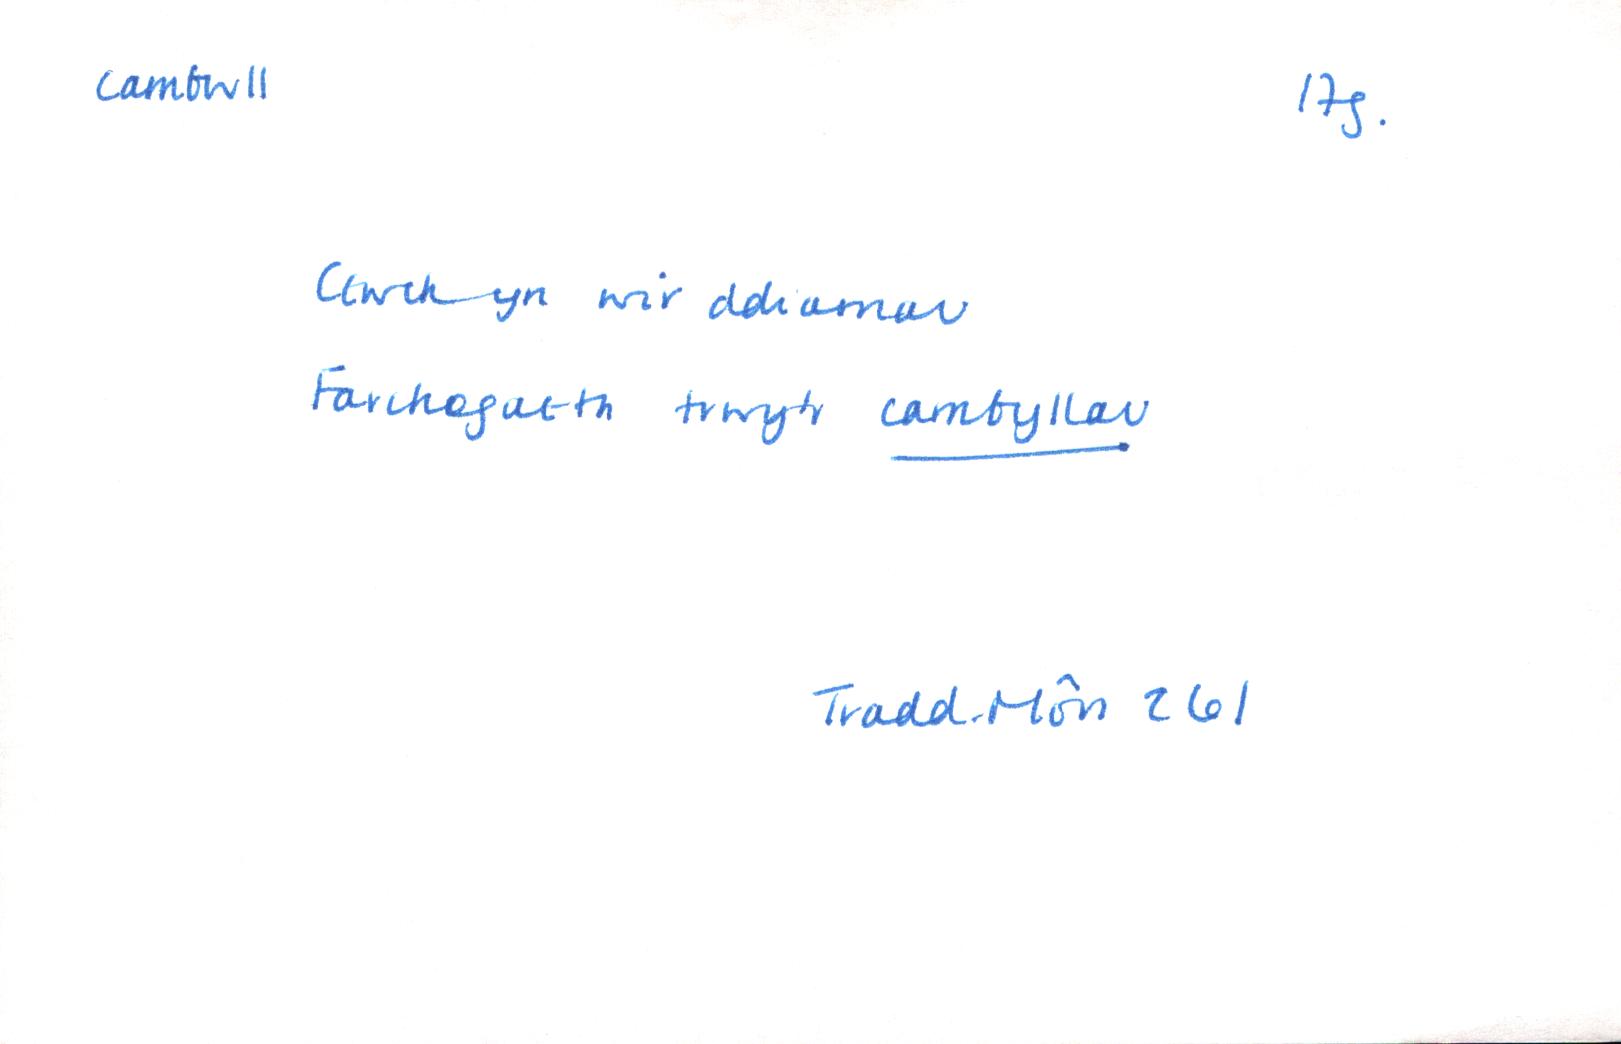 cambwll 17g.
Cewch yn wir ddiamav
Farchogaeth trwy'r cambyllav
Tradd. Môn 261